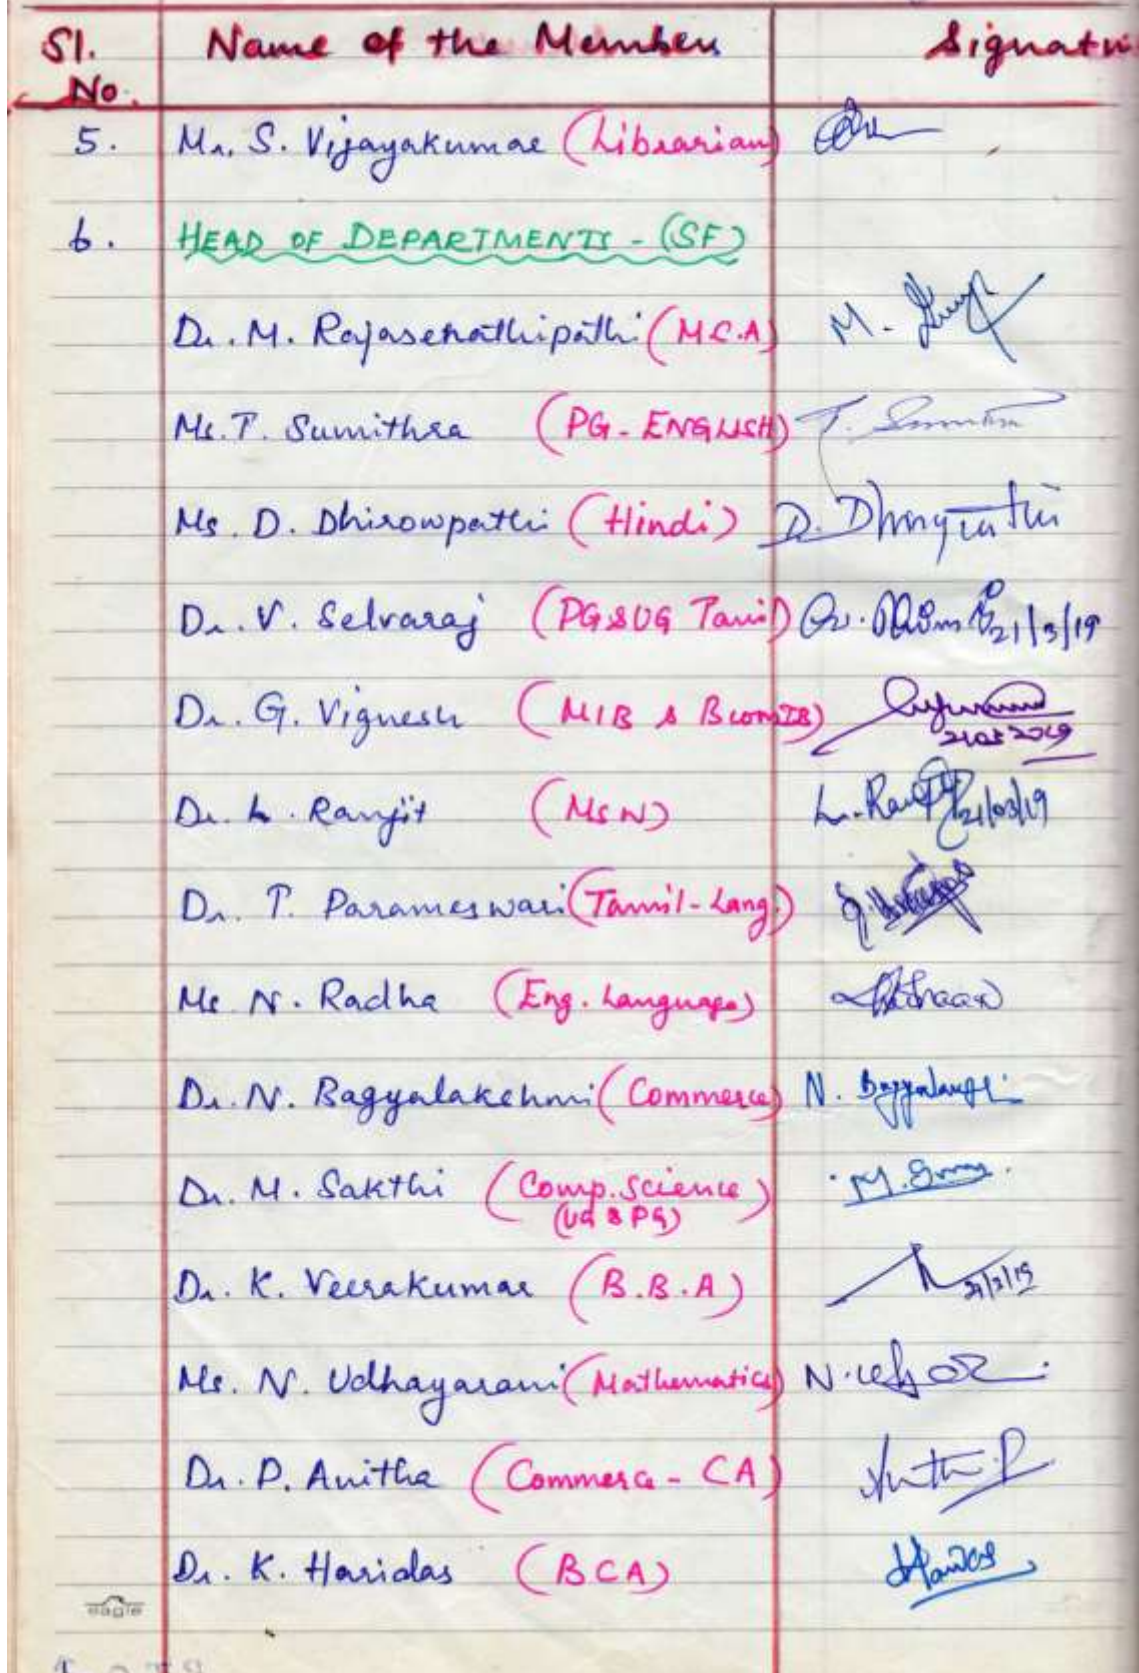 Sl. No. Name of the Member Signatu
5. Mr. S. Vijayakumar (Librarian)
6. HEAD OF DEPARTMENTS - (SF)
Dr. M. Rajasenathipathi (M.C.A) M.
Ms. T. Sumithra (PG - ENGLISH) T.
Ms. D. Dhirowpathi (Hindi) D.
Dr. V. Selvaraj (PG & UG Tamil) 21/3/19
Dr. G. Vignesh (MIB & BcomIB)
Dr. L. Ranjit (MSW) L. 21/03/19
Dr. T. Parameswari (Tamil-Lang.)
Ms N. Radha (Eng. Language)
Dr. N. Bagyalakshmi (Commerce) N.
Dr. M. Sakthi (Comp. Science)
(UG & PG) M.
Dr. K. Veerakumar (B.B.A) 21/3/19
Ms. N. Udhayarani (Mathematics) N.
Dr. P. Anitha (Commerce - CA)
Dr. K. Haridas (BCA)
eagle